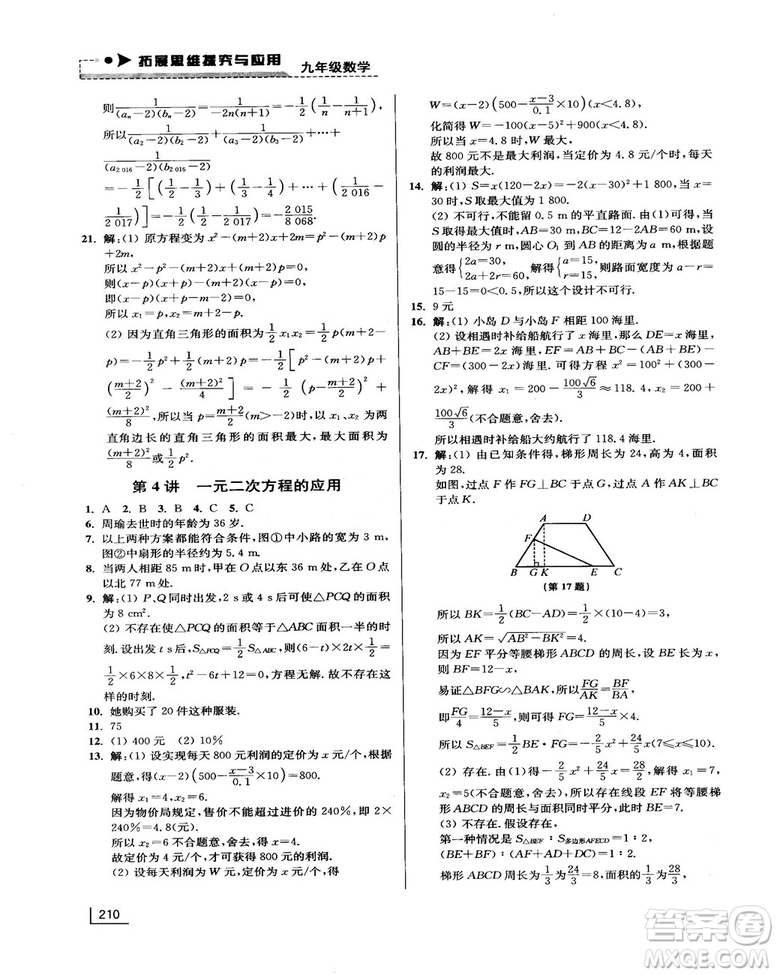 拓展思维探究与应用 九年级数学
则1/((aₙ−2)(bₙ−2))=1/(−2n(n+1))=−1/2(1/n−1/(n+1)),
所以1/((a₂−2)(b₂−2))+1/((a₃−2)(b₃−2))+…+
1/((a₂₀₁₆−2)(b₂₀₁₆−2))
=−1/2[(1/2−1/3)+(1/3−1/4)+…+(1/2 016−
1/2 017)]=−2 015/8 068.
21. 解:(1) 原方程变为x²−(m+2)x+2m=p²−(m+2)p
+2m,
所以x²−p²−(m+2)x+(m+2)p=0,
则(x−p)(x+p)−(m+2)(x−p)=0,
即(x−p)(x+p−m−2)=0,
所以x₁=p, x₂=m+2−p.
(2) 因为直角三角形的面积为1/2x₁x₂=1/2p(m+2−
p)=−1/2p²+1/2(m+2)p=−1/2[p²−(m+2)p+
((m+2)/2)²−(m+2)²/4]=−1/2(p−(m+2)/2)²+
(m+2)²/8,所以当p=(m+2)/2(m>−2)时,以x₁、x₂为两
直角边长的直角三角形的面积最大,最大面积为
(m+2)²/8或1/2p².
第4讲 一元二次方程的应用
1. A 2. B 3. B 4. C 5. C
6. 周瑜去世时的年龄为36岁.
7. 以上两种方案都能符合条件,图①中小路的宽为3 m,
图②中扇形的半径约为5.4 m.
8. 当两人相距85 m时,甲在O点以东36 m处,乙在O点
以北77 m处.
9. 解:(1) P、Q同时出发,2 s或4 s可使△PCQ的面积
为8 cm².
(2) 不存在使△PCQ的面积等于△ABC面积一半的时
刻.设出发t s后,S△PCQ=1/2S△ABC,则1/2(6−t)·2t=1/2
×1/2×6×8,t²−6t+12=0,方程无解.故不存在这
样的时刻.
10. 她购买了20件这种服装.
11. 75
12. (1) 400元 (2) 10%
13. 解:(1) 设实现每天800元利润的定价为x元/个,根据
题意,得(x−2)(500−(x−3)/0.1×10)=800.
解得x₁=4,x₂=6.
因为物价局规定,售价不能超过进价的240%,即2×
240%=4.8(元),
所以x₂=6(不合题意,舍去).
故定价为4元/个,才可获得800元的利润.
(2) 设每天利润为W元,定价为x元/个,得
W=(x−2)(500−(x−3)/0.1×10)(x≤4.8),
化简得W=−100(x−5)²+900(x≤4.8).
所以当x=4.8时,W最大,
故800元不是最大利润,当定价为4.8元/个时,每天
的利润最大.
14. 解:(1) S=x(120−2x)=−2(x−30)²+1 800,当x=
30时,S取最大值为1 800.
(2) 不可行,不能留出0.5 m的平直路面.由(1)得当
S取得最大值时,AB=30 m,BC=120−2x=60 m,设
圆的半径为r m,圆心O₁到AB的距离为a m,根据题
意得{2a=30, 2a+2r=60, 解得{a=15, r=15,所以路面宽度为a−r=
15−15=0<0.5,所以这个设计不可行.
15. 9元
16. 解:(1) 小岛D与小岛F相距100海里.
(2) 设相遇时补给船航行了x海里,那么DE=x海里,
AB+BE=2x海里,EF=AB+BC−(AB+BE)−
CF=(300−2x)海里.可得方程x²=100²+(300−
2x)²,解得x₁=200−100√6/3≈118.4,x₂=200+
100√6/3(不合题意,舍去).
所以相遇时补给船大约航行了118.4海里.
17. 解:(1) 由已知条件得,梯形周长为24,高为4,面积
为28.
如图,过点F作FG⊥BC于点G,过点A作AK⊥BC
于点K.
A D F B G K E C
(第17题)
所以BK=1/2(BC−AD)=1/2×(10−4)=3,
所以AK=√(AB²−BK²)=4.
因为EF平分等腰梯形ABCD的周长,设BE长为x,
则BF=12−x.
易证△BFG∽△BAK,所以FG/AK=BF/BA,
即FG/4=(12−x)/5,可得FG=(12−x)/5×4.
所以S△BEF=1/2BE·FG=−2/5x²+24/5x(7≤x≤10).
(2) 存在.由(1)得−2/5x²+24/5x=14,解得x₁=7,
x₂=5(不合题意,舍去),所以存在线段EF将等腰梯
形ABCD的周长与面积同时平分,此时BE=7.
(3) 不存在.假设存在,
第一种情况是S△BEF∶S多边形AFECD=1∶2,
(BE+BF)∶(AF+AD+DC)=1∶2.
梯形ABCD周长的1/3为24/3=8,面积的1/3为28/3,
210
答案圈
MXQE.COM